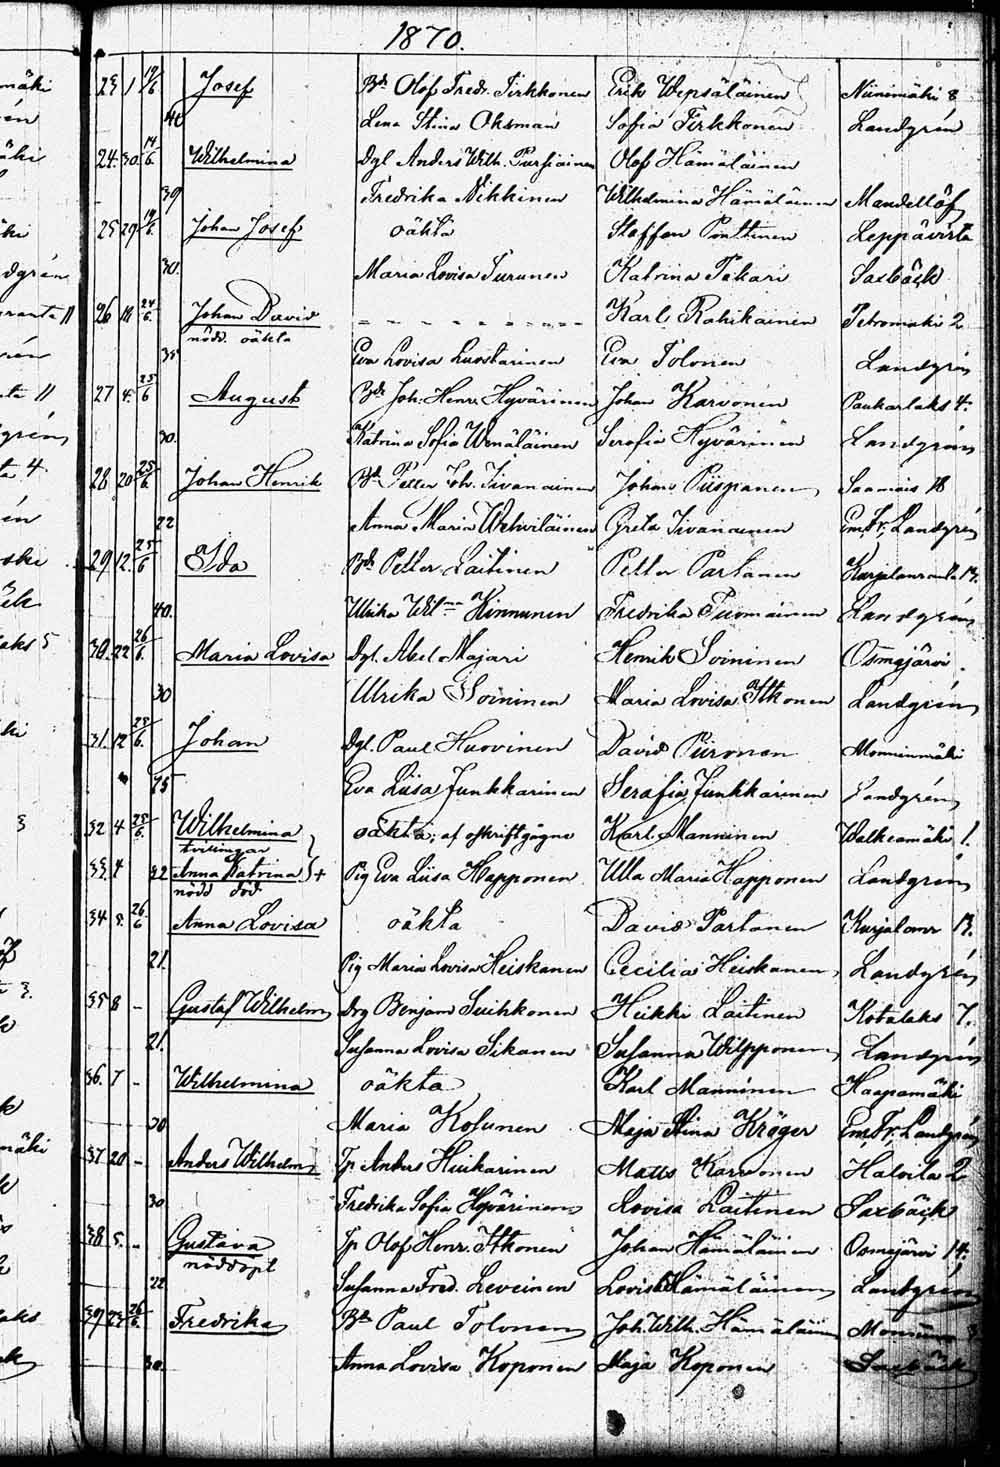 1870.
23 1 19/6 Josef Bd. Olof Fredr. Tirkkonen Erik Wepsäläinen Niinimäki 8
40 Lena Stina Oksman Sofia Tirkkonen Landgrén
24. 30. 19/6. Wilhelmina Dgl Anders Wilh. Pursiainen Olof Hämäläinen
39 Fredrika Nikkinen Wilhelmina Hämäläinen Mandellöf
25 29 19/6. Johan Josef oäkta Staffan Ponttinen Leppävirta
30. Maria Lovisa Turunen Katrina Pakari Saxbäck
26 18 24/6. Johan David Karl Rahikainen Petromäki 2
nödd. oäkta
35 Eva Lovisa Luostarinen Eva Tolonen Landgrén
27 4. 25/6 August Bde Joh. Henr. Hyvärinen Johan Karvonen Paukarlaks 4.
30. Katrina Sofia Wenäläinen Serafia Hyvärinen Landgrén
28 20 25/6. Johan Henrik Bd. Petter Joh. Iivanainen Johan Piispanen Saamais 18
22 Anna Maria Wehviläinen Greta Iivanainen Em. Fr. Landgrén
29 12. 25/6 Ida Bd. Petter Laitinen Petter Partanen Kurjalanranta 13.
40. Ulrika Wilma Kinnunen Fredrika Tuomainen Landgrén
30. 22 26/6. Maria Lovisa Dgl. Abel Majari Henrik Soininen Osmajärvi
30 Ulrika Soininen Maria Lovisa Itkonen Landgrén
31. 12 28/6. Johan Dgl. Paul Huovinen David Piironen Monninmäki
Eva Liisa Junkkarinen Serafia Junkkarinen Landgrén
32 4 28/6. Wilhelmina oäkta, af Karl Manninen Walkeamäki 1.
tvillingar
33. 4 22 Anna Katrina + Pig Eva Liisa Happonen Ulla Maria Happonen Landgrén
nödd död
34 8. 26/6 Anna Lovisa oäkta David Partanen Kurjalanr 13.
21. Pig Maria Lovisa Heiskanen Cecilia Heiskanen Landgrén
35 8 - Gustaf Wilhelm Drg Benjam Suihkonen Heikki Laitinen Kotalaks 7.
21. Susanna Lovisa Sikanen Susanna Wilpponen Landgrén
36. 7 - Wilhelmina oäkta Karl Manninen Haapamäki
30 Maria Kosunen Maja Stina Kröger Em. Fr. Landgrén
37 20 - Anders Wilhelm Tp Anders Huikarinen Matts Karvonen Halvila 2
30 Fredrika Sofia Hyvärinen Lovisa Laitinen Saxbäck
38 5. - Gustava Tp Olof Henr. Itkonen Johan Hämäläinen Osmajärvi 14.
nöddöpt
22 Susanna Fred. Leveinen Lovisa Hämäläinen Landgrén
39 23 26/6. Fredrika Bd. Paul Tolonen Joh. Wilh. Hämäläinen
30. Anna Lovisa Koponen Maja Koponen Saxbäck